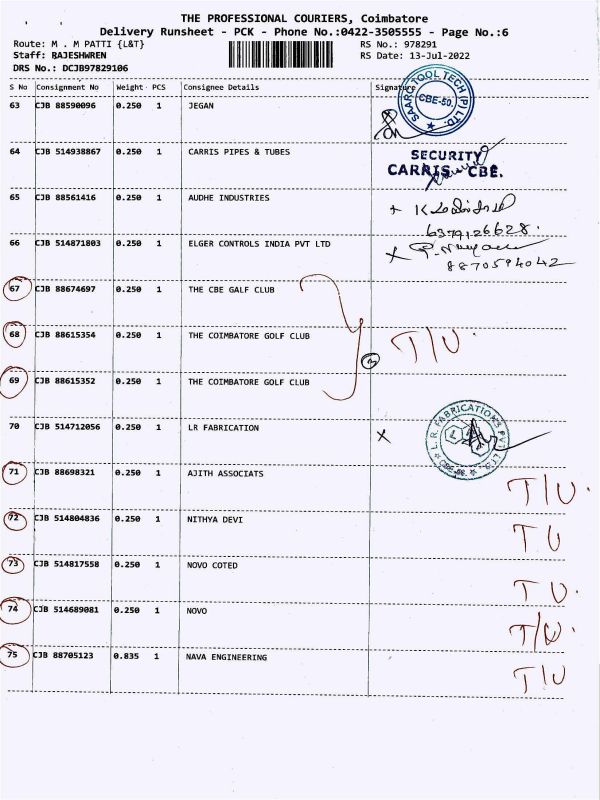 THE PROFESSIONAL COURIERS, Coimbatore
Delivery Runsheet - PCK - Phone No.:0422-3505555 - Page No.:6
Route: M . M PATTI {L&T} RS No.: 978291
Staff: RAJESHWREN RS Date: 13-Jul-2022
DRS No.: DCJB97829106
S No Consignment No Weight PCS Consignee Details Signature
SAARC TOOL TECH (P) LTD.
CBE-50.
63 CJB 88590096 0.250 1 JEGAN
64 CJB 514938867 0.250 1 CARRIS PIPES & TUBES
SECURITY
CARRIS CBE.
65 CJB 88561416 0.250 1 AUDHE INDUSTRIES
6379126628.
66 CJB 514871803 0.250 1 ELGER CONTROLS INDIA PVT LTD
8870594042
67 CJB 88674697 0.250 1 THE CBE GALF CLUB
68 CJB 88615354 0.250 1 THE COIMBATORE GOLF CLUB
T/U.
69 CJB 88615352 0.250 1 THE COIMBATORE GOLF CLUB
70 CJB 514712056 0.250 1 LR FABRICATION
L.R. FABRICATIONS PVT. LTD.
71 CJB 88698321 0.250 1 AJITH ASSOCIATS
T/U.
72 CJB 514804836 0.250 1 NITHYA DEVI
T U
73 CJB 514817558 0.250 1 NOVO COTED
T U.
74 CJB 514689081 0.250 1 NOVO
T/U.
75 CJB 88705123 0.835 1 NAVA ENGINEERING
T/U